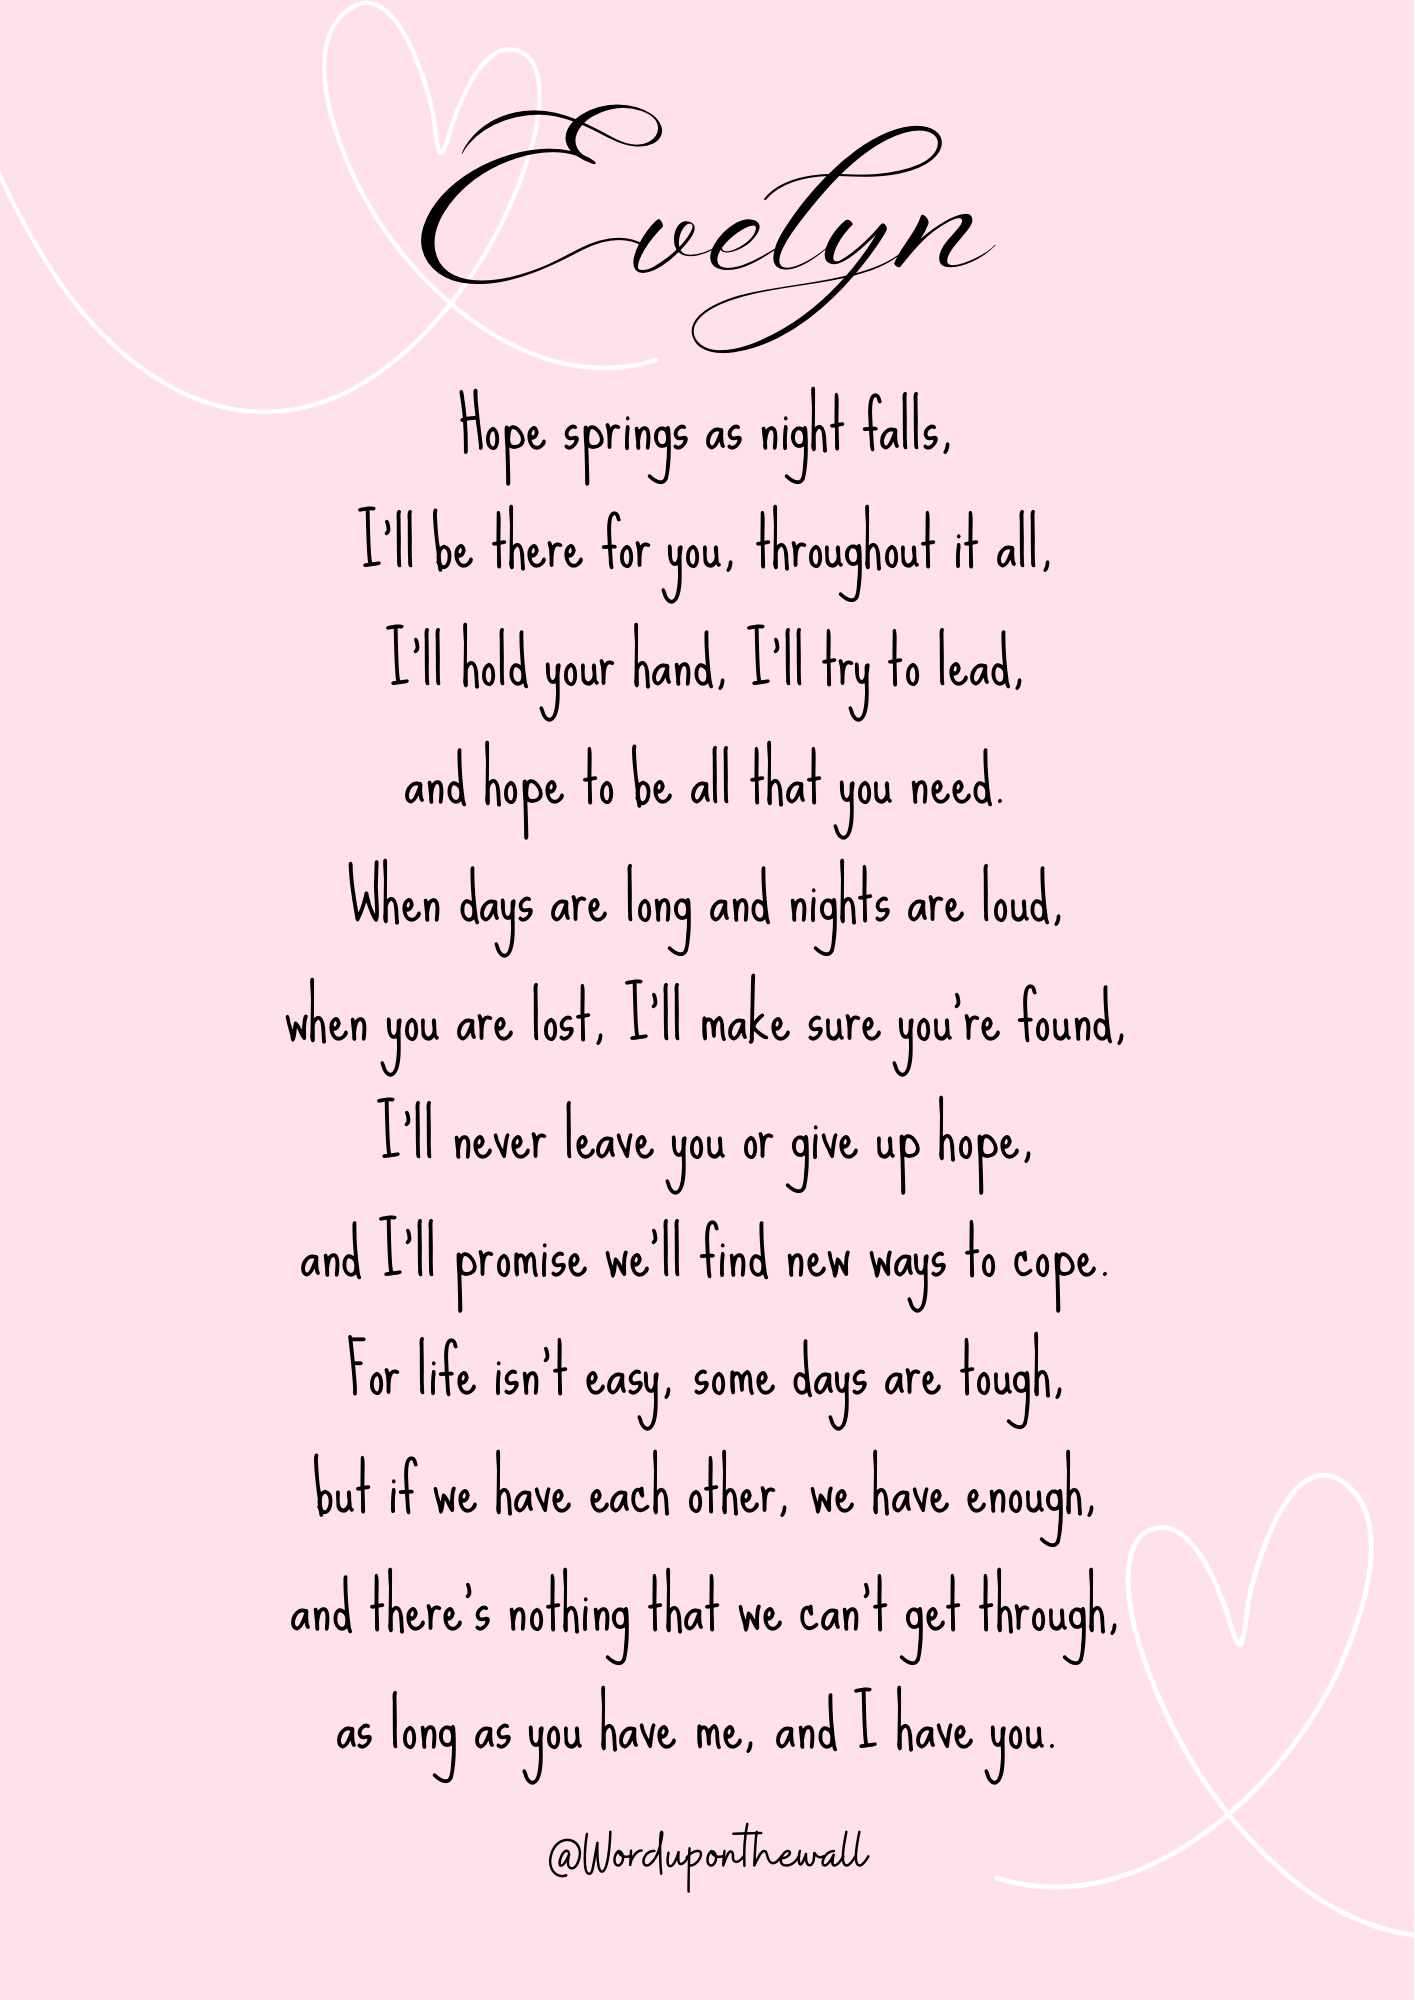 Evelyn
Hope springs as night falls,
I'll be there for you, throughout it all,
I'll hold your hand, I'll try to lead,
and hope to be all that you need.
When days are long and nights are loud,
when you are lost, I'll make sure you're found,
I'll never leave you or give up hope,
and I'll promise we'll find new ways to cope.
For life isn't easy, some days are tough,
but if we have each other, we have enough,
and there's nothing that we can't get through,
as long as you have me, and I have you.
@Worduponthewall